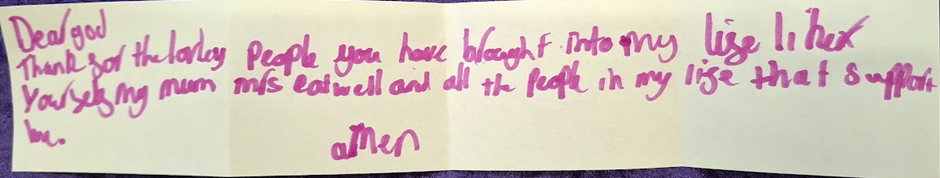 Dear god
Thank for the lovley People you have brought into my life like
Yourself my mum mrs eatwell and all the People in my life that support
me.
amen